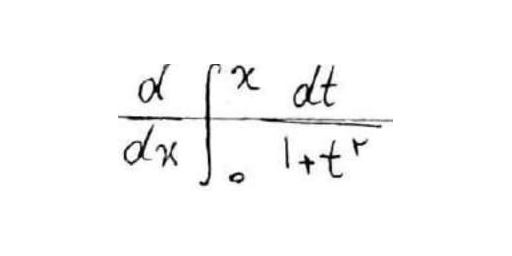 \frac{d}{dx} \int_{0}^{x} \frac{dt}{1+t^{۲}}